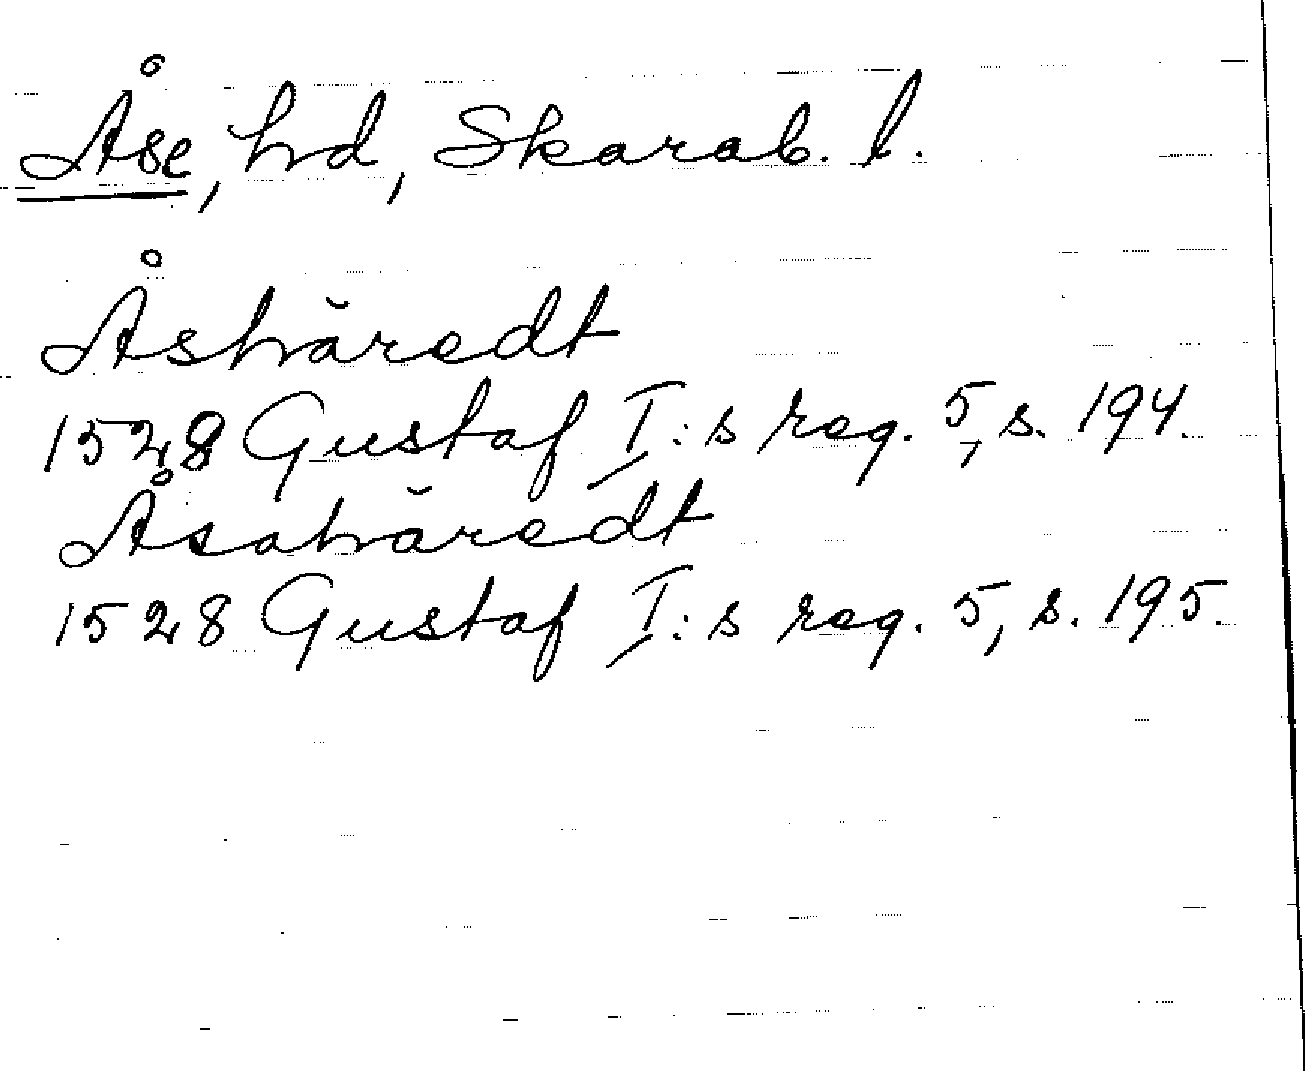 Åse, hd, Skarab. l.
Åshăredt
1528 Gustaf I:s reg. 5, s. 194.
Åsahăredt
1528 Gustaf I:s reg. 5, s. 195.